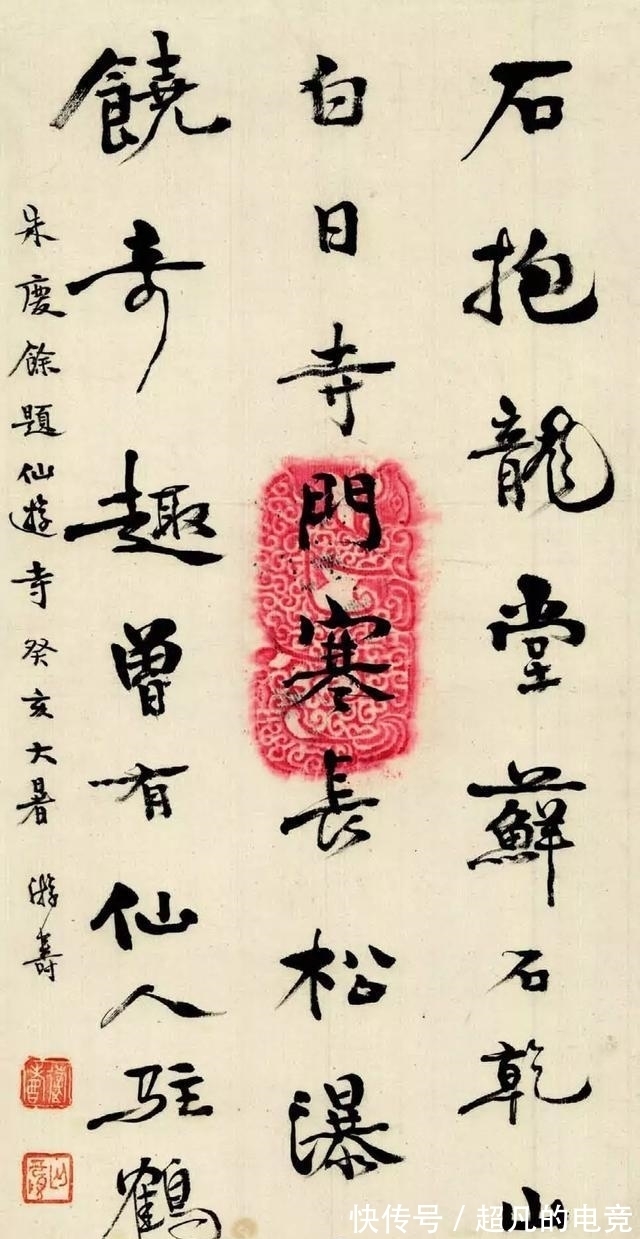 石抱龍堂蘚石乾山
白日寺門寒長松瀑
饒奇趣曾有仙人駐鶴
朱慶餘題仙遊寺 癸亥大暑 游壽
快传号 / 超凡的电竞